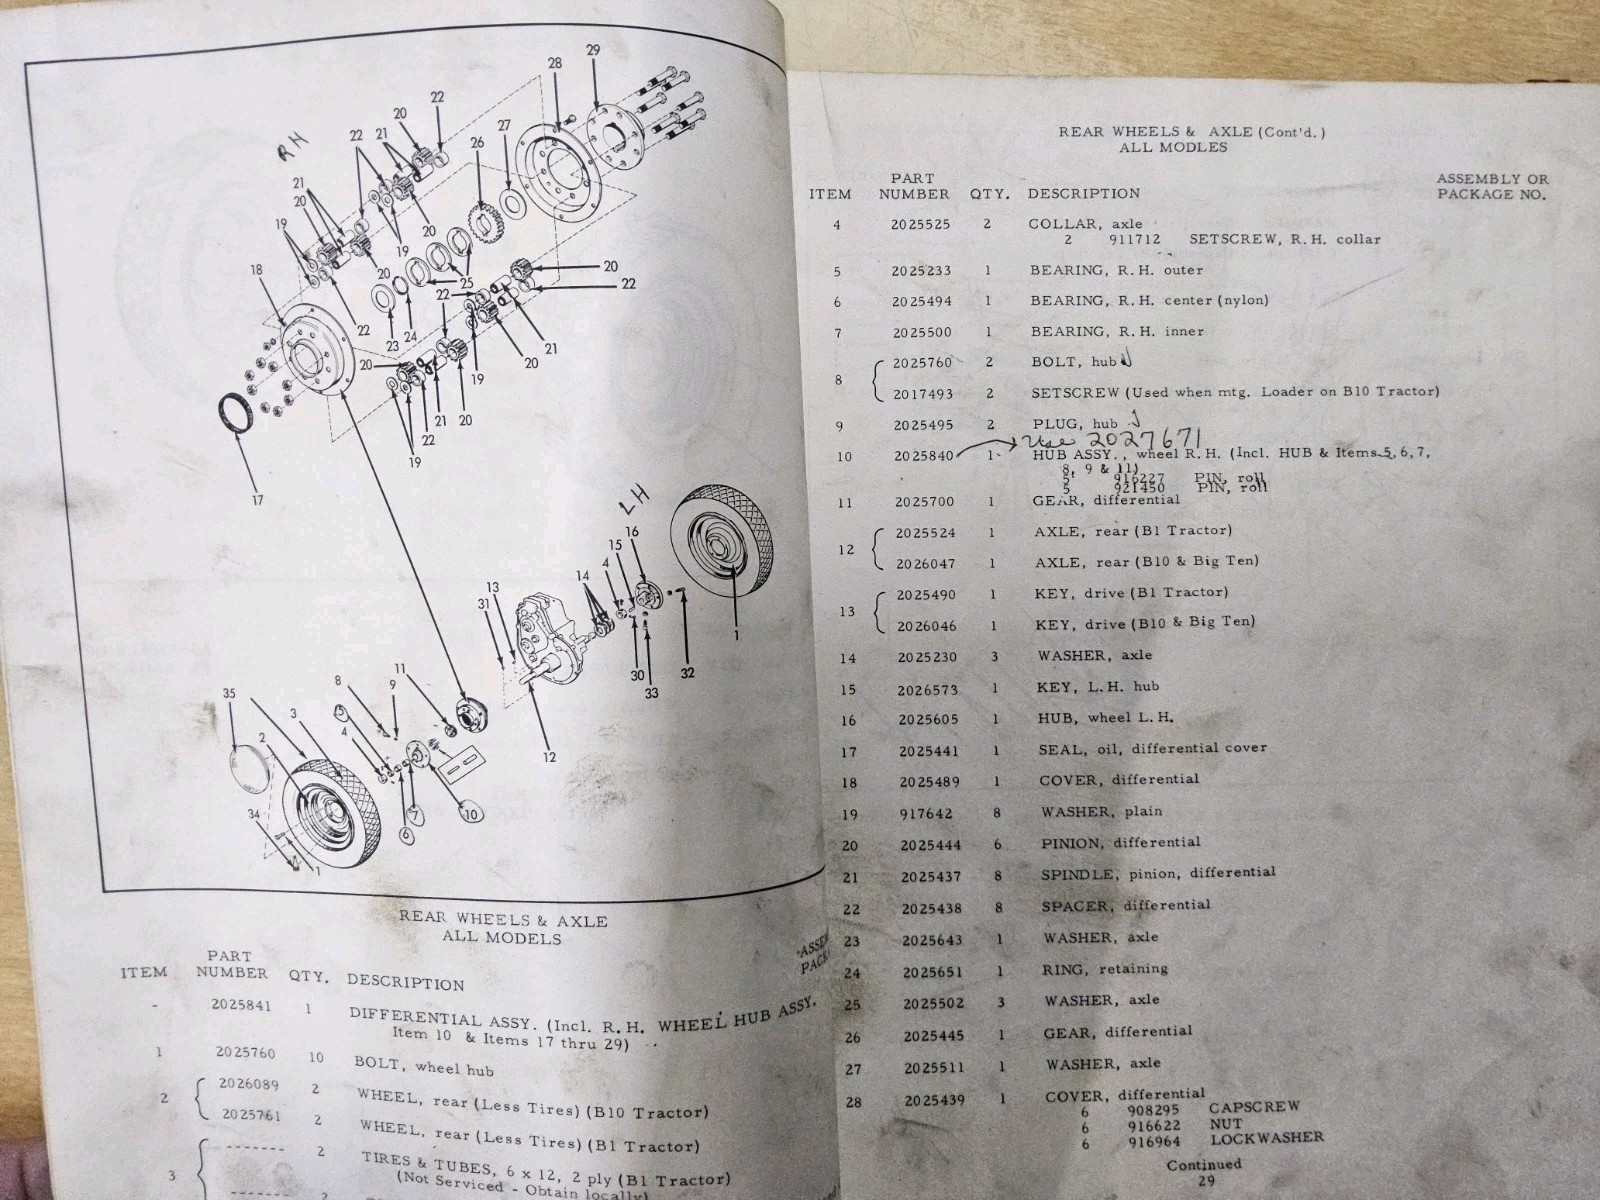 RH
29
28
22
20
27
21
22
26
21
20
20
19
19
20
20
25
22
18
22
22
24
23
20
19
21
20
20
21
20
22
19
17
LH
16
15
4
14
13
31
1
32
30
33
12
11
35
8
9
3
5
4
2
7
10
6
34
1
REAR WHEELS & AXLE
ALL MODELS
"ASSEM
PACK
ITEM PART NUMBER QTY. DESCRIPTION
- 2025841 1 DIFFERENTIAL ASSY. (Incl. R.H. WHEEL HUB ASSY.
Item 10 & Items 17 thru 29)
1 2025760 10 BOLT, wheel hub
2 2026089 2 WHEEL, rear (Less Tires) (B10 Tractor)
2025761 2 WHEEL, rear (Less Tires) (B1 Tractor)
3 ------- 2 TIRES & TUBES, 6 x 12, 2 ply (B1 Tractor)
(Not Serviced - Obtain locally)
------- 2
REAR WHEELS & AXLE (Cont'd.)
ALL MODLES
ITEM PART NUMBER QTY. DESCRIPTION ASSEMBLY OR PACKAGE NO.
4 2025525 2 COLLAR, axle
2 911712 SETSCREW, R.H. collar
5 2025233 1 BEARING, R.H. outer
6 2025494 1 BEARING, R.H. center (nylon)
7 2025500 1 BEARING, R.H. inner
8 2025760 2 BOLT, hub
2017493 2 SETSCREW (Used when mtg. Loader on B10 Tractor)
9 2025495 2 PLUG, hub
Use 2027671
10 2025840 1 HUB ASSY., wheel R.H. (Incl. HUB & Items 5, 6, 7,
8, 9 & 11)
5 916227 PIN, roll
5 921450 PIN, roll
11 2025700 1 GEAR, differential
12 2025524 1 AXLE, rear (B1 Tractor)
2026047 1 AXLE, rear (B10 & Big Ten)
13 2025490 1 KEY, drive (B1 Tractor)
2026046 1 KEY, drive (B10 & Big Ten)
14 2025230 3 WASHER, axle
15 2026573 1 KEY, L.H. hub
16 2025605 1 HUB, wheel L.H.
17 2025441 1 SEAL, oil, differential cover
18 2025489 1 COVER, differential
19 917642 8 WASHER, plain
20 2025444 6 PINION, differential
21 2025437 8 SPINDLE, pinion, differential
22 2025438 8 SPACER, differential
23 2025643 1 WASHER, axle
24 2025651 1 RING, retaining
25 2025502 3 WASHER, axle
26 2025445 1 GEAR, differential
27 2025511 1 WASHER, axle
28 2025439 1 COVER, differential
6 908295 CAPSCREW
6 916622 NUT
6 916964 LOCKWASHER
Continued
29